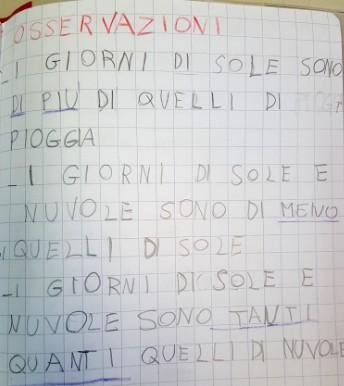 OSSERVAZIONI
- I GIORNI DI SOLE SONO
DI PIÙ DI QUELLI DI
PIOGGIA
- I GIORNI DI SOLE E
NUVOLE SONO DI MENO
DI QUELLI DI SOLE
- I GIORNI DI SOLE E
NUVOLE SONO TANTI
QUANTI QUELLI DI NUVOLE